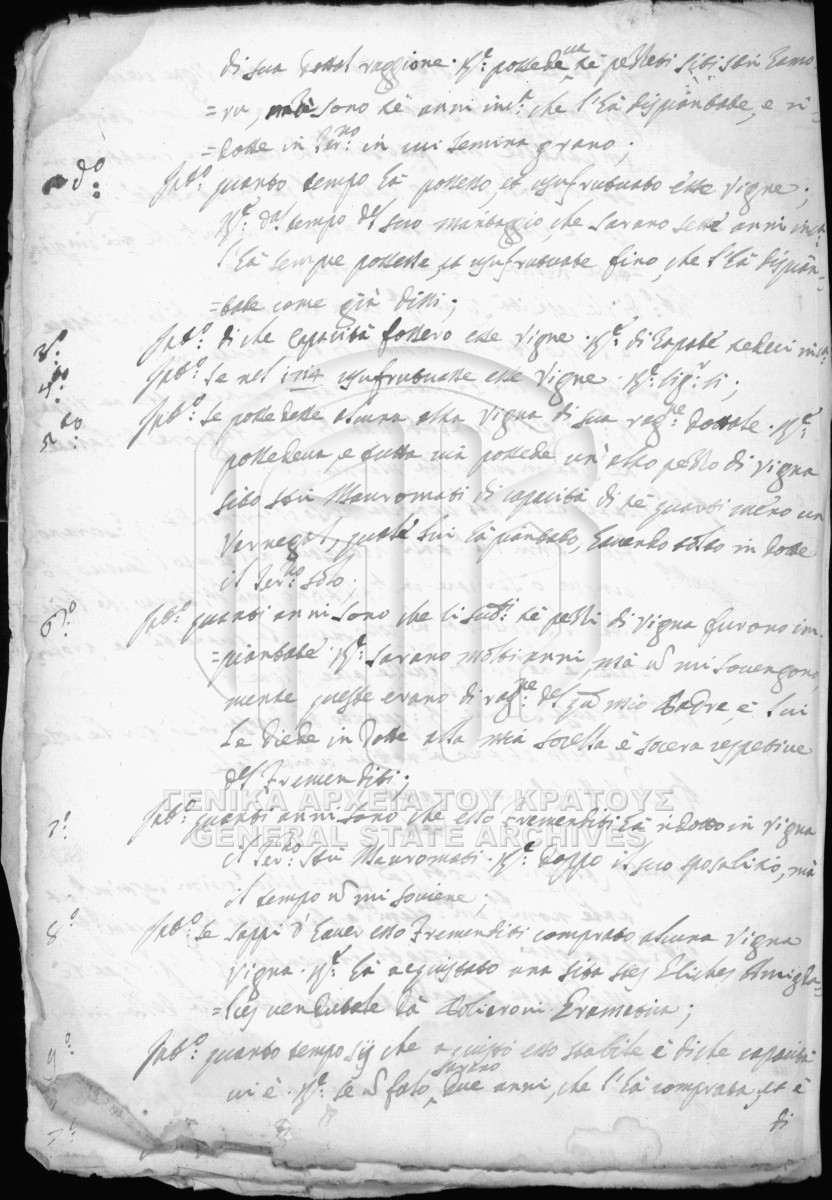 di sua dottal raggione. Rs: possedeua tè pezzeti siti stin Zamo=
=ra, mà sono tè anni inc.a che l'hà dispiantate, e ri=
=dotte in Ter:no in cui semina grano;
do: Int:o quanto tempo hà possesso, et usufrutuato esse vigne;
Rs: dal tempo del suo maritaggio, che sarano sette anni inc.a
l'hà sempre possesse, et usufrutuate fino, che l'hà dispian=
=tate come già dissi;
3o: Int:o di che capacità fossero esse vigne. Rs: di Zapate sedeci inc.a
4to: Int:o se nel 1714 usufrutuasse esse vigne. Rs: sig:r si;
5to: Int:o se possedesse alcuna altra vigna di sua rag:ne dottale. Rs:
possedeua, e tutta uia possede un'altro pezzo di vigna
sito stin Mauromati di capacità di tè quarti meno un
, quale lui hà piantato, hauendo tolto in dotte
il Ter:no solo.
6o: Int:o quanti anni sono che li sud:ti tè pezzi di vigna furono im=
=piantate. Rs: sarano molti anni, mà non mi souengono,
mente queste erano di rag:ne del qm mio Padre, e lui
le diede in dotte alla mia sorella è socera respetiue
del Trementiti;
7o: Int:o quanti anni sono che esso Trementiti hà ridotto in vigna
il Ter:no stin Mauromati. Rs: doppo il suo sposalitio, mà
il tempo non mi souiene;
8o: Int:o se sappi d'hauer esso Trementiti comprato alcuna vigna
vigna. Rs: hà acquistato una sita sties Eliches Amigda=
=lies uendutale dà Policroni Gramatica;
9o: Int:o quanto tempo sij che acquistò esso stabile è di che capacità
ui è. Rs: se non falo sarano due anni, che l'hà comprata, et è
di
ΓΕΝΙΚΑ ΑΡΧΕΙΑ ΤΟΥ ΚΡΑΤΟΥΣ
GENERAL STATE ARCHIVES